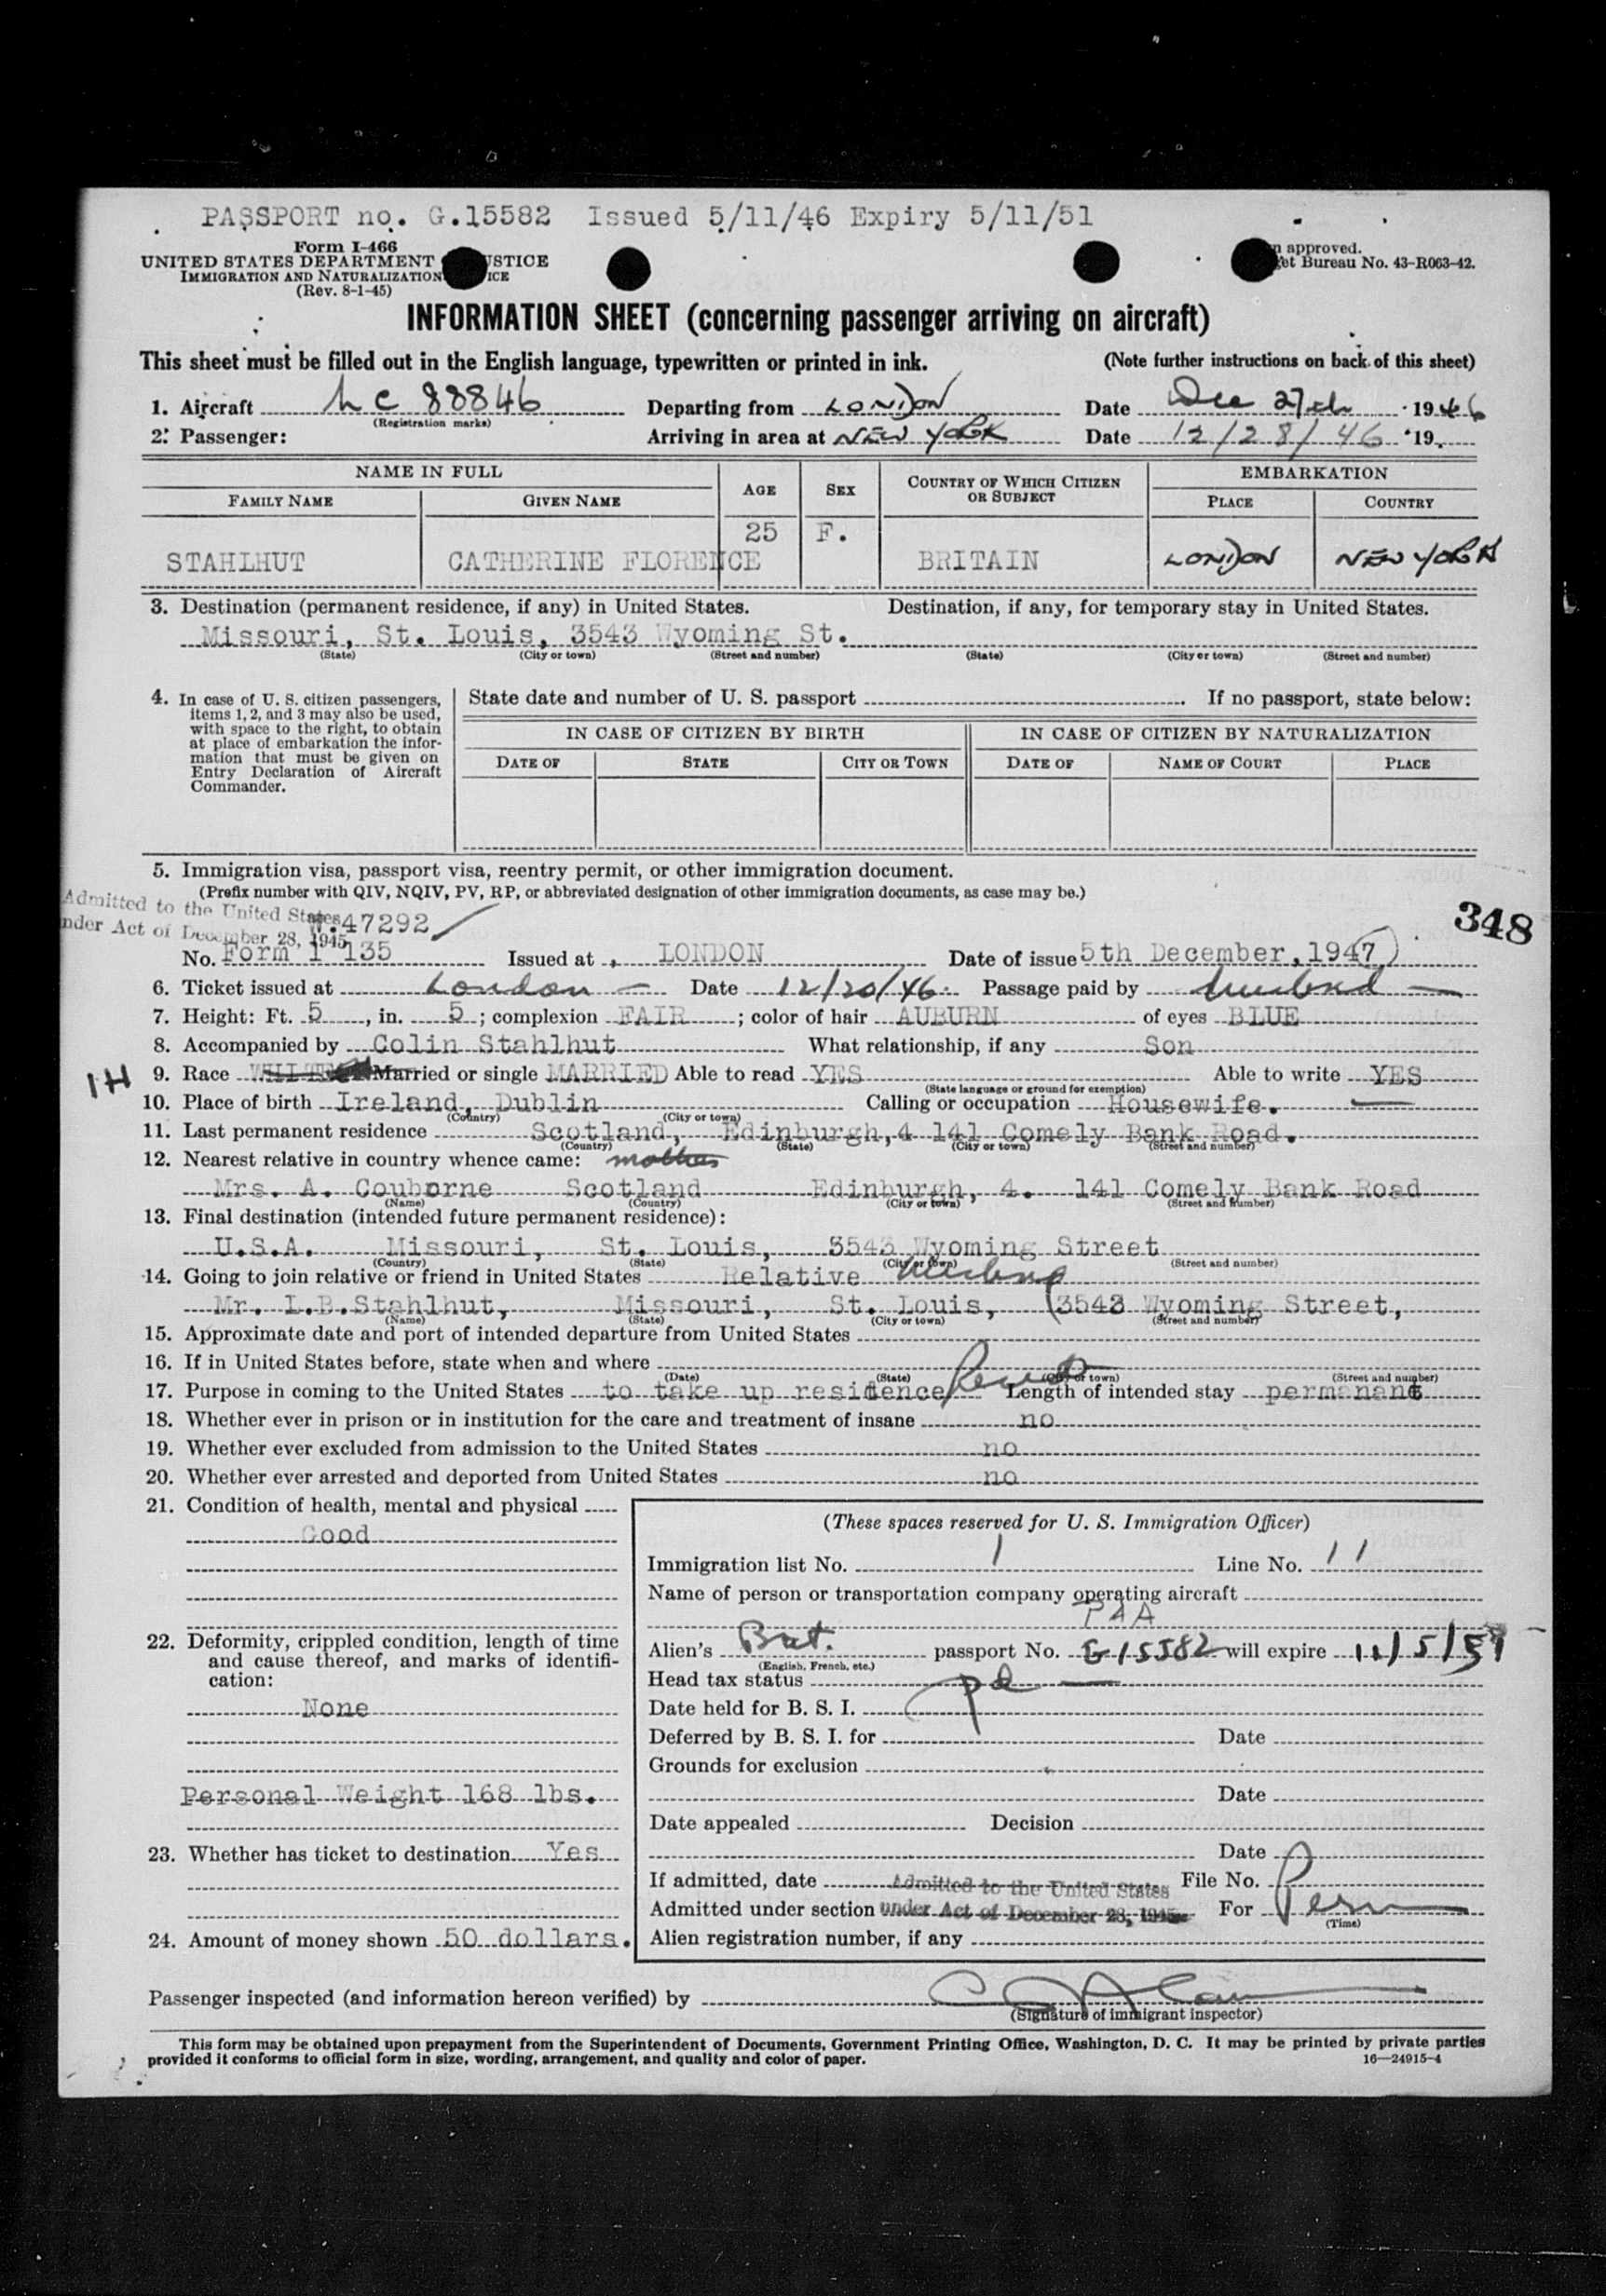 PASSPORT no. G.15582 Issued 5/11/46 Expiry 5/11/51
Form I-466
UNITED STATES DEPARTMENT USTICE
IMMIGRATION AND NATURALIZATION ICE
(Rev. 8-1-45)
n approved.
et Bureau No. 43-R063-42.
INFORMATION SHEET (concerning passenger arriving on aircraft)
This sheet must be filled out in the English language, typewritten or printed in ink. (Note further instructions on back of this sheet)
1. Aircraft NC 88846 Departing from LONDON Date Dec 27th 1946
(Registration marks)
2. Passenger: Arriving in area at NEW YORK Date 12/28/46 19
NAME IN FULL AGE SEX COUNTRY OF WHICH CITIZEN OR SUBJECT EMBARKATION
FAMILY NAME GIVEN NAME PLACE COUNTRY
25 F.
STAHLHUT CATHERINE FLORENCE BRITAIN LONDON NEW YORK
3. Destination (permanent residence, if any) in United States. Destination, if any, for temporary stay in United States.
Missouri, St. Louis, 3543 Wyoming St.
(State) (City or town) (Street and number) (State) (City or town) (Street and number)
4. In case of U. S. citizen passengers, items 1, 2, and 3 may also be used, with space to the right, to obtain at place of embarkation the information that must be given on Entry Declaration of Aircraft Commander.
State date and number of U. S. passport If no passport, state below:
IN CASE OF CITIZEN BY BIRTH IN CASE OF CITIZEN BY NATURALIZATION
DATE OF STATE CITY OR TOWN DATE OF NAME OF COURT PLACE
5. Immigration visa, passport visa, reentry permit, or other immigration document.
(Prefix number with QIV, NQIV, PV, RP, or abbreviated designation of other immigration documents, as case may be.)
Admitted to the United States
nder Act of December 28, 1945
47292
348
No. Form I 135 Issued at LONDON Date of issue 5th December, 1947
6. Ticket issued at London Date 12/20/46 Passage paid by husband
7. Height: Ft. 5, in. 5; complexion FAIR; color of hair AUBURN of eyes BLUE
8. Accompanied by Colin Stahlhut What relationship, if any Son
1H
9. Race WHITE Married or single MARRIED Able to read YES Able to write YES
(State language or ground for exemption)
10. Place of birth Ireland, Dublin Calling or occupation Housewife.
(Country) (City or town)
11. Last permanent residence Scotland, Edinburgh,4 141 Comely Bank Road.
(Country) (State) (City or town) (Street and number)
12. Nearest relative in country whence came: mother
Mrs. A. Couborne Scotland Edinburgh, 4. 141 Comely Bank Road
(Name) (Country) (City or town) (Street and number)
13. Final destination (intended future permanent residence):
U.S.A. Missouri, St. Louis, 3543 Wyoming Street
(Country) (State) (City or town) (Street and number)
14. Going to join relative or friend in United States Relative husband
Mr. L.B.Stahlhut, Missouri, St. Louis, 3543 Wyoming Street,
(Name) (State) (City or town) (Street and number)
15. Approximate date and port of intended departure from United States
16. If in United States before, state when and where
(Date) (State) (City or town) (Street and number)
17. Purpose in coming to the United States to take up residence Length of intended stay permanant
18. Whether ever in prison or in institution for the care and treatment of insane no
19. Whether ever excluded from admission to the United States no
20. Whether ever arrested and deported from United States no
21. Condition of health, mental and physical
Good
22. Deformity, crippled condition, length of time and cause thereof, and marks of identification:
None
Personal Weight 168 lbs.
23. Whether has ticket to destination Yes
24. Amount of money shown 50 dollars.
(These spaces reserved for U. S. Immigration Officer)
Immigration list No. 1 Line No. 11
Name of person or transportation company operating aircraft
PAA
Alien's Brit. passport No. G15582 will expire 11/5/51
(English, French, etc.)
Head tax status pd
Date held for B. S. I.
Deferred by B. S. I. for Date
Grounds for exclusion
Date
Date appealed Decision
Date
If admitted, date Admitted to the United States File No.
Admitted under section under Act of December 28, 1945 For Perm
(Time)
Alien registration number, if any
Passenger inspected (and information hereon verified) by
(Signature of immigrant inspector)
This form may be obtained upon prepayment from the Superintendent of Documents, Government Printing Office, Washington, D. C. It may be printed by private parties
provided it conforms to official form in size, wording, arrangement, and quality and color of paper. 16—24915-4